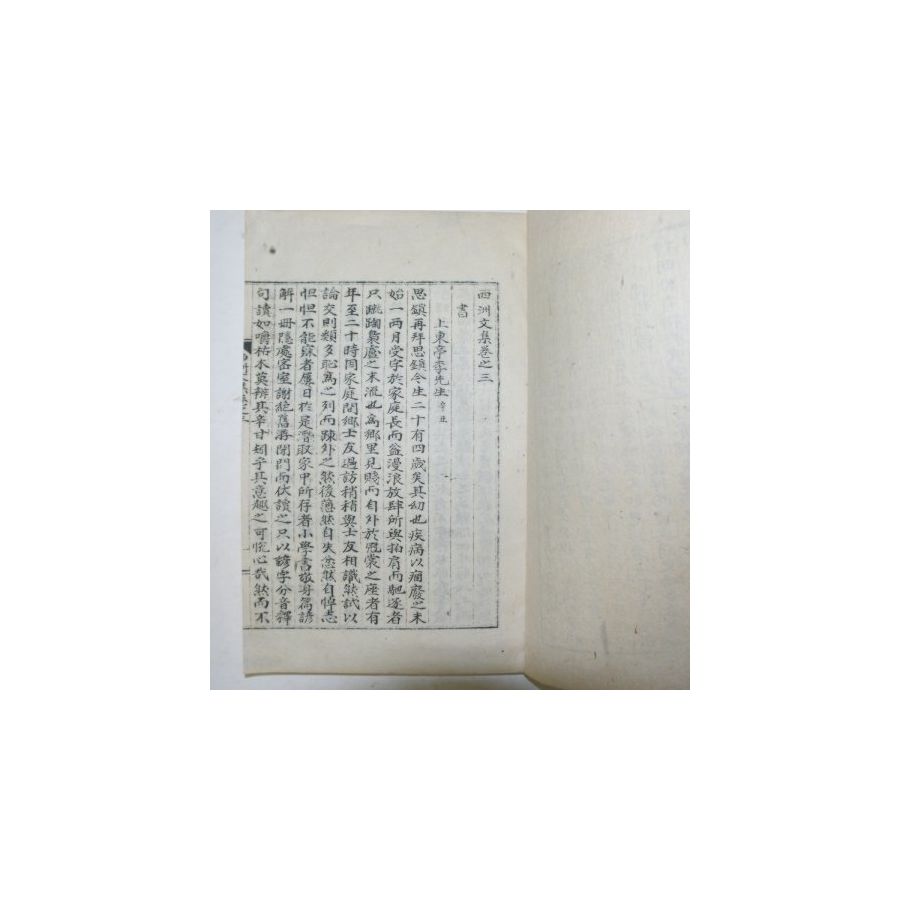 西洲文集卷之三
書
上東亭李先生 辛丑
思鎭再拜思鎭今生二十有四歲矣其幼也疾病以痼廢之未
始一兩月受字於家庭長而益漫浪放肆所與拍肩而馳逐者
只蹴踘梟盧之末流也爲鄕里見賤而自外於冠裳之座者有
年至二十時因家庭間鄕士友過訪稍稍與士友相識然試以
論交則類多恥爲之列而踈外之然後薄然自失忿然自悼忐
怛怛不能寐者屢日於是潛取家中所存者小學書敬身篇諺
解一冊隱處密室謝絶舊遊閉門而伏讀之只以諺字分音釋
句讀如嚼枯木莫辨其辛甘矧乎其意趣之可悅心哉然而不